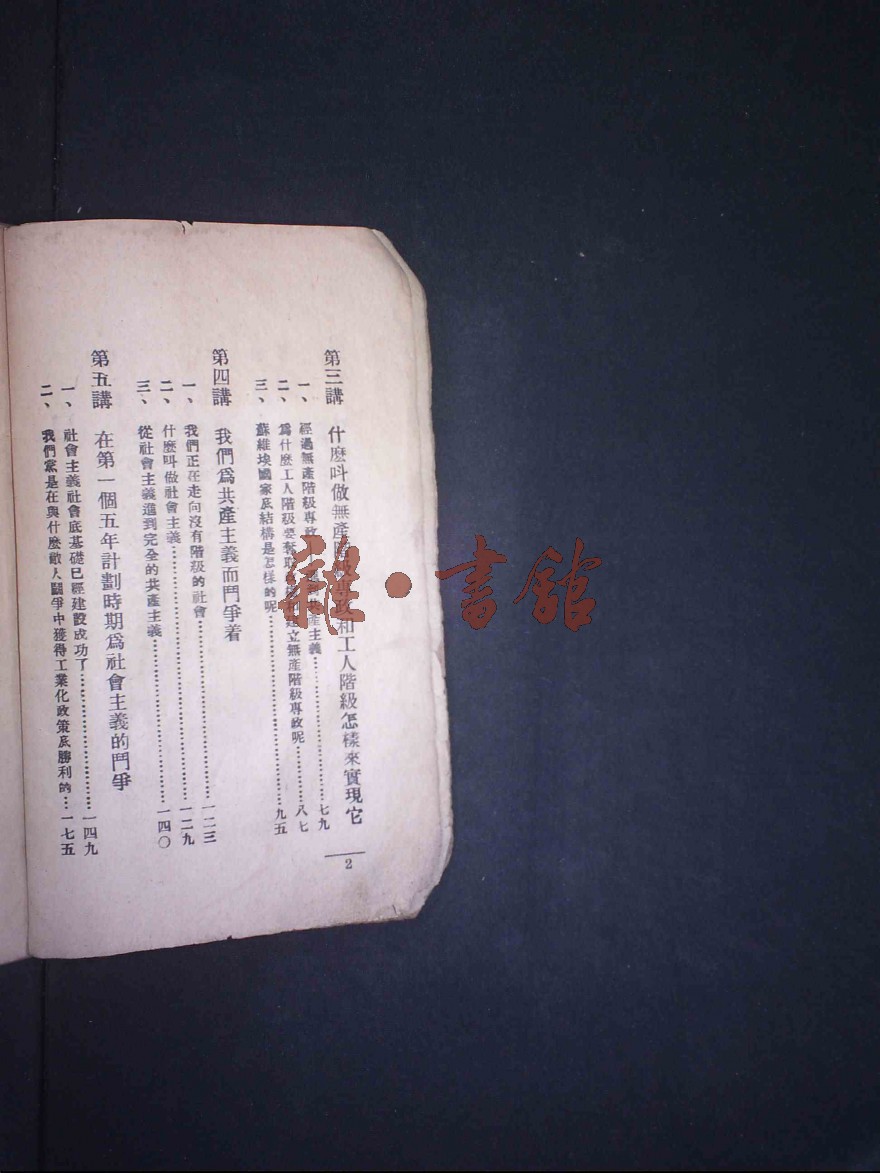 第三講 什麽叫做無產階級專政和工人階級怎樣來實現它
一、 經過無產階級專政 共產主義……七九
二、 爲什麽工人階級要奪取 建立無產階級專政呢……八七
三、 蘇維埃國家底結構是怎樣的呢……九五
第四講 我們爲共產主義而鬥爭着
一、 我們正在走向沒有階級的社會……一二三
二、 什麽叫做社會主義……一二九
三、 從社會主義進到完全的共產主義……一四〇
第五講 在第一個五年計劃時期爲社會主義的鬥爭
一、 社會主義社會底基礎已經建設成功了……一四九
二、 我們黨是在與什麽敵人鬪爭中獲得工業化政策底勝利的…一七五
2
雜·書館